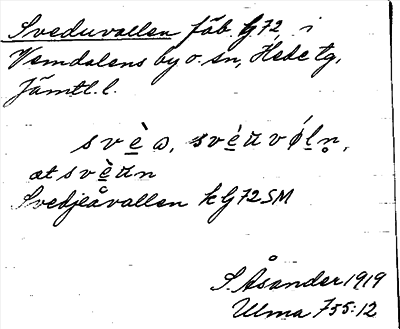 Sveduvallen fäb. kG72, i
Vemdalens by o. sn, Hede tg,
Jämtl. l.
svè ɷ, svèɷvǿl̥n̥,
at svèɷn
Svedjeåvallen kG72SM
S. Åsander 1919
Ulma 755:12